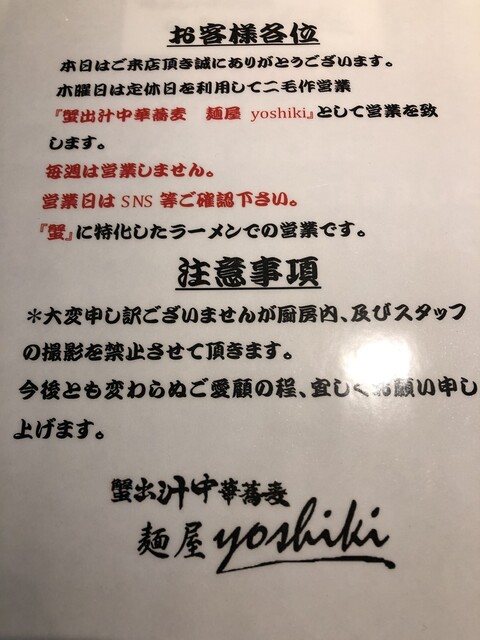 お客様各位
本日はご来店頂き誠にありがとうございます。
木曜日は定休日を利用して二毛作営業
『蟹出汁中華蕎麦　麺屋 yoshiki』として営業を致
します。
毎週は営業しません。
営業日は SNS 等ご確認下さい。
『蟹』に特化したラーメンでの営業です。
注意事項
＊大変申し訳ございませんが厨房内、及びスタッフ
の撮影を禁止させて頂きます。
今後とも変わらぬご愛顧の程、宜しくお願い申し
上げます。
蟹出汁中華蕎麦
麺屋 yoshiki